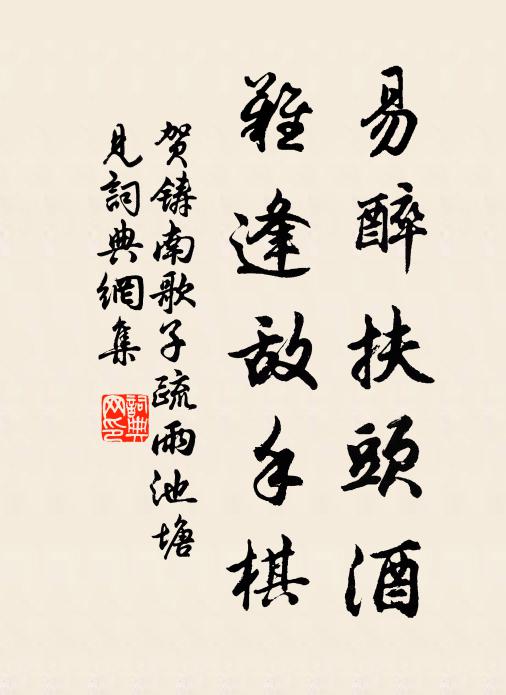 易醉扶頭酒
難逢敌手棋
贺鑄南歌子疏雨池塘
見詞典網集
詞典
网印